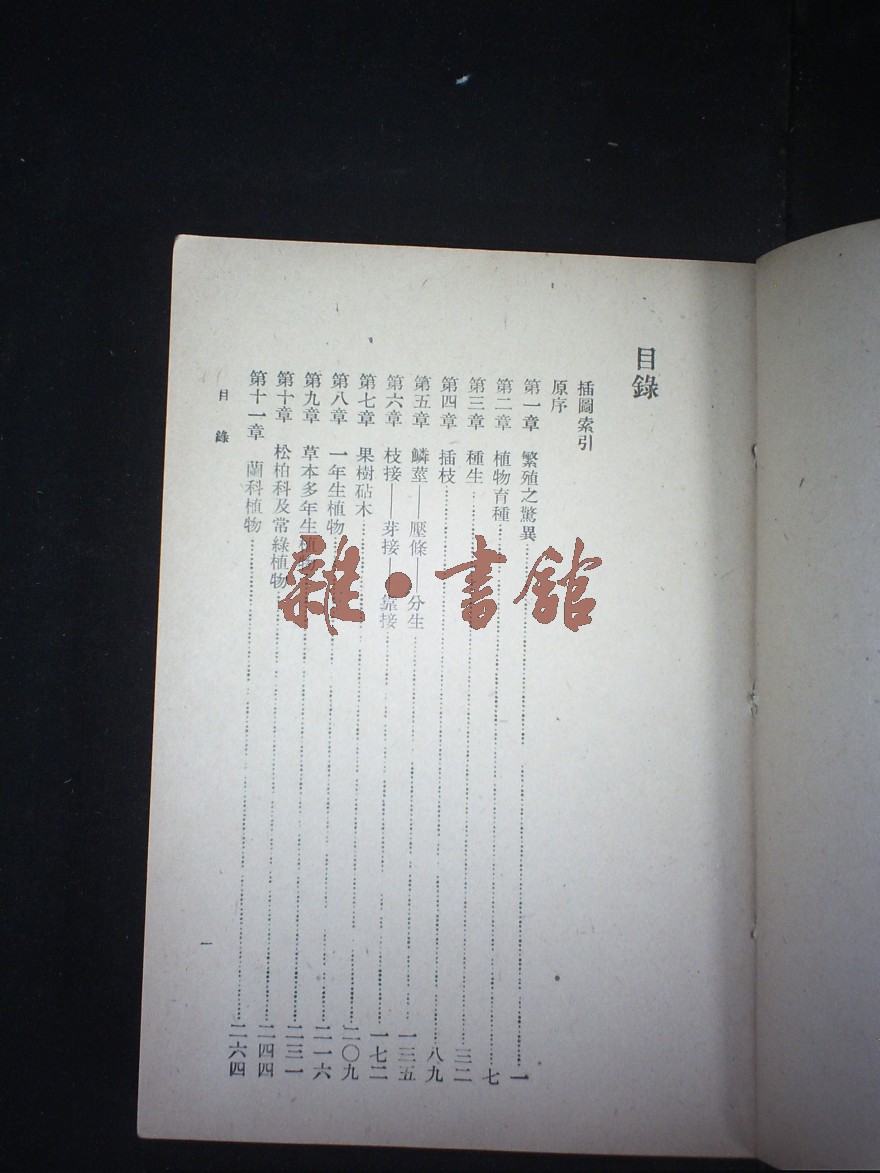 目錄
插圖索引
原序
第一章 繁殖之驚異……一
第二章 植物育種……七
第三章 種生……三二
第四章 插枝……八九
第五章 鱗莖——壓條——分生……一三五
第六章 枝接——芽接——靠接……一七二
第七章 果樹砧木……二〇九
第八章 一年生植物……二一六
第九章 草本多年生植物……二三一
第十章 松柏科及常綠植物……二四四
第十一章 蘭科植物……二六四
目錄
一
雜·書館